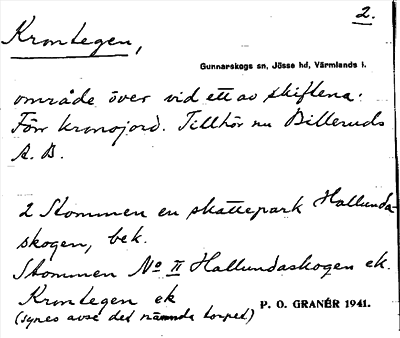 2.
Krontegen,
Gunnarskogs sn, Jösse hd, Värmlands l.
område över vid ett av skiftena.
Förr kronojord. Tillhör nu Billeruds
A. B.
2 Stommen en skattepark Hallunda-
skogen, bek.
Stommen No II Hallundaskogen ek.
Krontegen ek
(synes avse det nämnda torpet)
P. O. GRANÉR 1941.